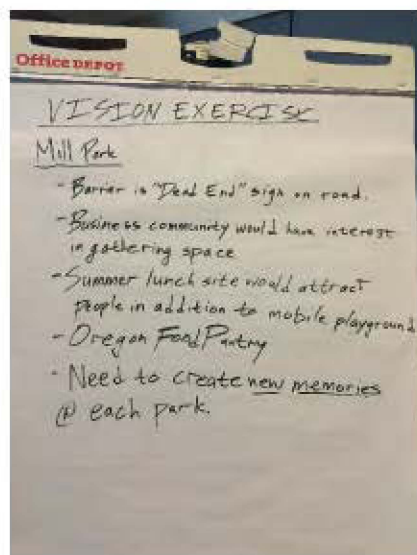 Office DEPOT
VISION EXERCISE
Mill Park
- Barrier is "Dead End" sign on road.
- Business community would have interest
in gathering space
- Summer lunch site would attract
people in addition to mobile playground
- Oregon Food Pantry
- Need to create new memories
@ each park.